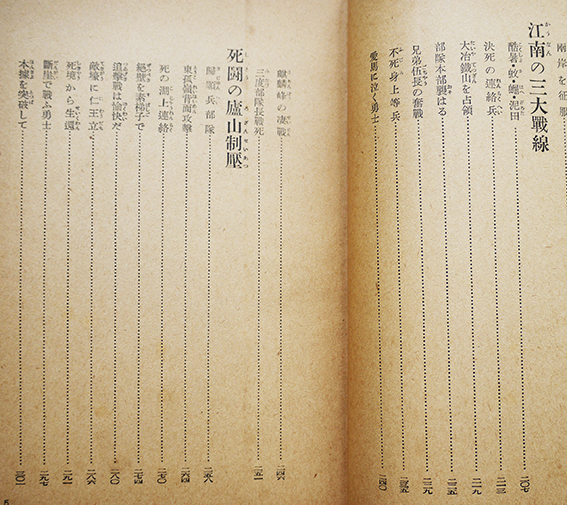 兩岸を征服
江南の三大戰線
酷暑・蚊・蠅・泥田 二〇七
決死の連絡兵 二一三
大冶鐵山を占領 二一九
部隊本部襲はる 二二五
兄弟伍長の奮戰 二二九
不死身上等兵 二三五
愛馬に泣く勇士 二四〇
麒麟峰の凄戰 二四六
三度部隊長戰死 二五一
死鬪の廬山制壓
歸還兵部隊 二五八
東孤嶺背面攻擊 二六四
死の湖上連絡 二七〇
絕壁を繩梯子で 二七四
追擊戰は愉快だ 二八〇
敵壕に仁王立 二八六
死境から生還 二九一
斷崖で戰ふ勇士 二九七
木據を突破して 三〇一
5